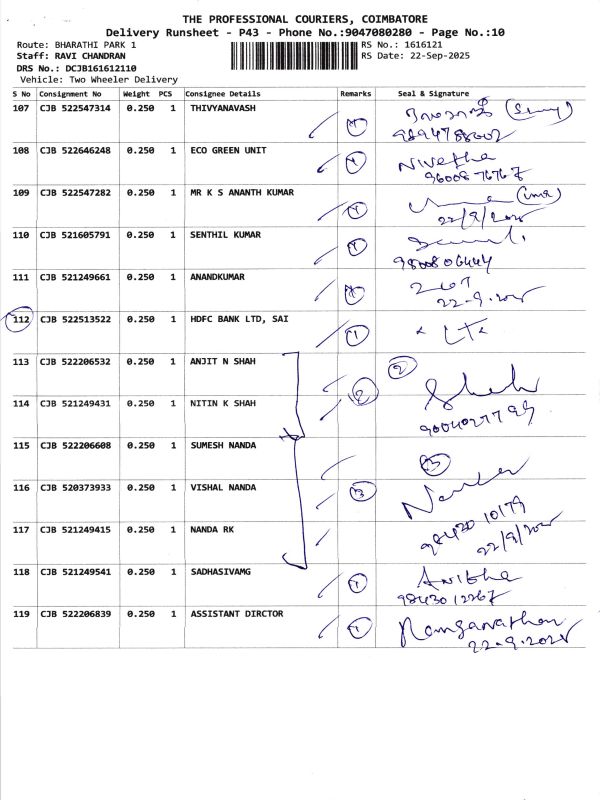 THE PROFESSIONAL COURIERS, COIMBATORE
Delivery Runsheet - P43 - Phone No.:9047080280 - Page No.:10
Route: BHARATHI PARK 1 RS No.: 1616121
Staff: RAVI CHANDRAN RS Date: 22-Sep-2025
DRS No.: DCJB161612110
Vehicle: Two Wheeler Delivery
S No Consignment No Weight PCS Consignee Details Remarks Seal & Signature
107 CJB 522547314 0.250 1 THIVYANAVASH 1
108 CJB 522646248 0.250 1 ECO GREEN UNIT 1 Nivetha
96008 76767
109 CJB 522547282 0.250 1 MR K S ANANTH KUMAR 1 (uma)
22/9/2025
110 CJB 521605791 0.250 1 SENTHIL KUMAR 1
111 CJB 521249661 0.250 1 ANANDKUMAR 1
22-9-2025
112 CJB 522513522 0.250 1 HDFC BANK LTD, SAI 1
113 CJB 522206532 0.250 1 ANJIT N SHAH 2
114 CJB 521249431 0.250 1 NITIN K SHAH 2 Shah
115 CJB 522206608 0.250 1 SUMESH NANDA
116 CJB 520373933 0.250 1 VISHAL NANDA 3 Nanda
117 CJB 521249415 0.250 1 NANDA RK 98420 10179
22/9/2025
118 CJB 521249541 0.250 1 SADHASIVAMG 1 Anitha
98430 12267
119 CJB 522206839 0.250 1 ASSISTANT DIRCTOR 1 Ranganathan
22-9-2025